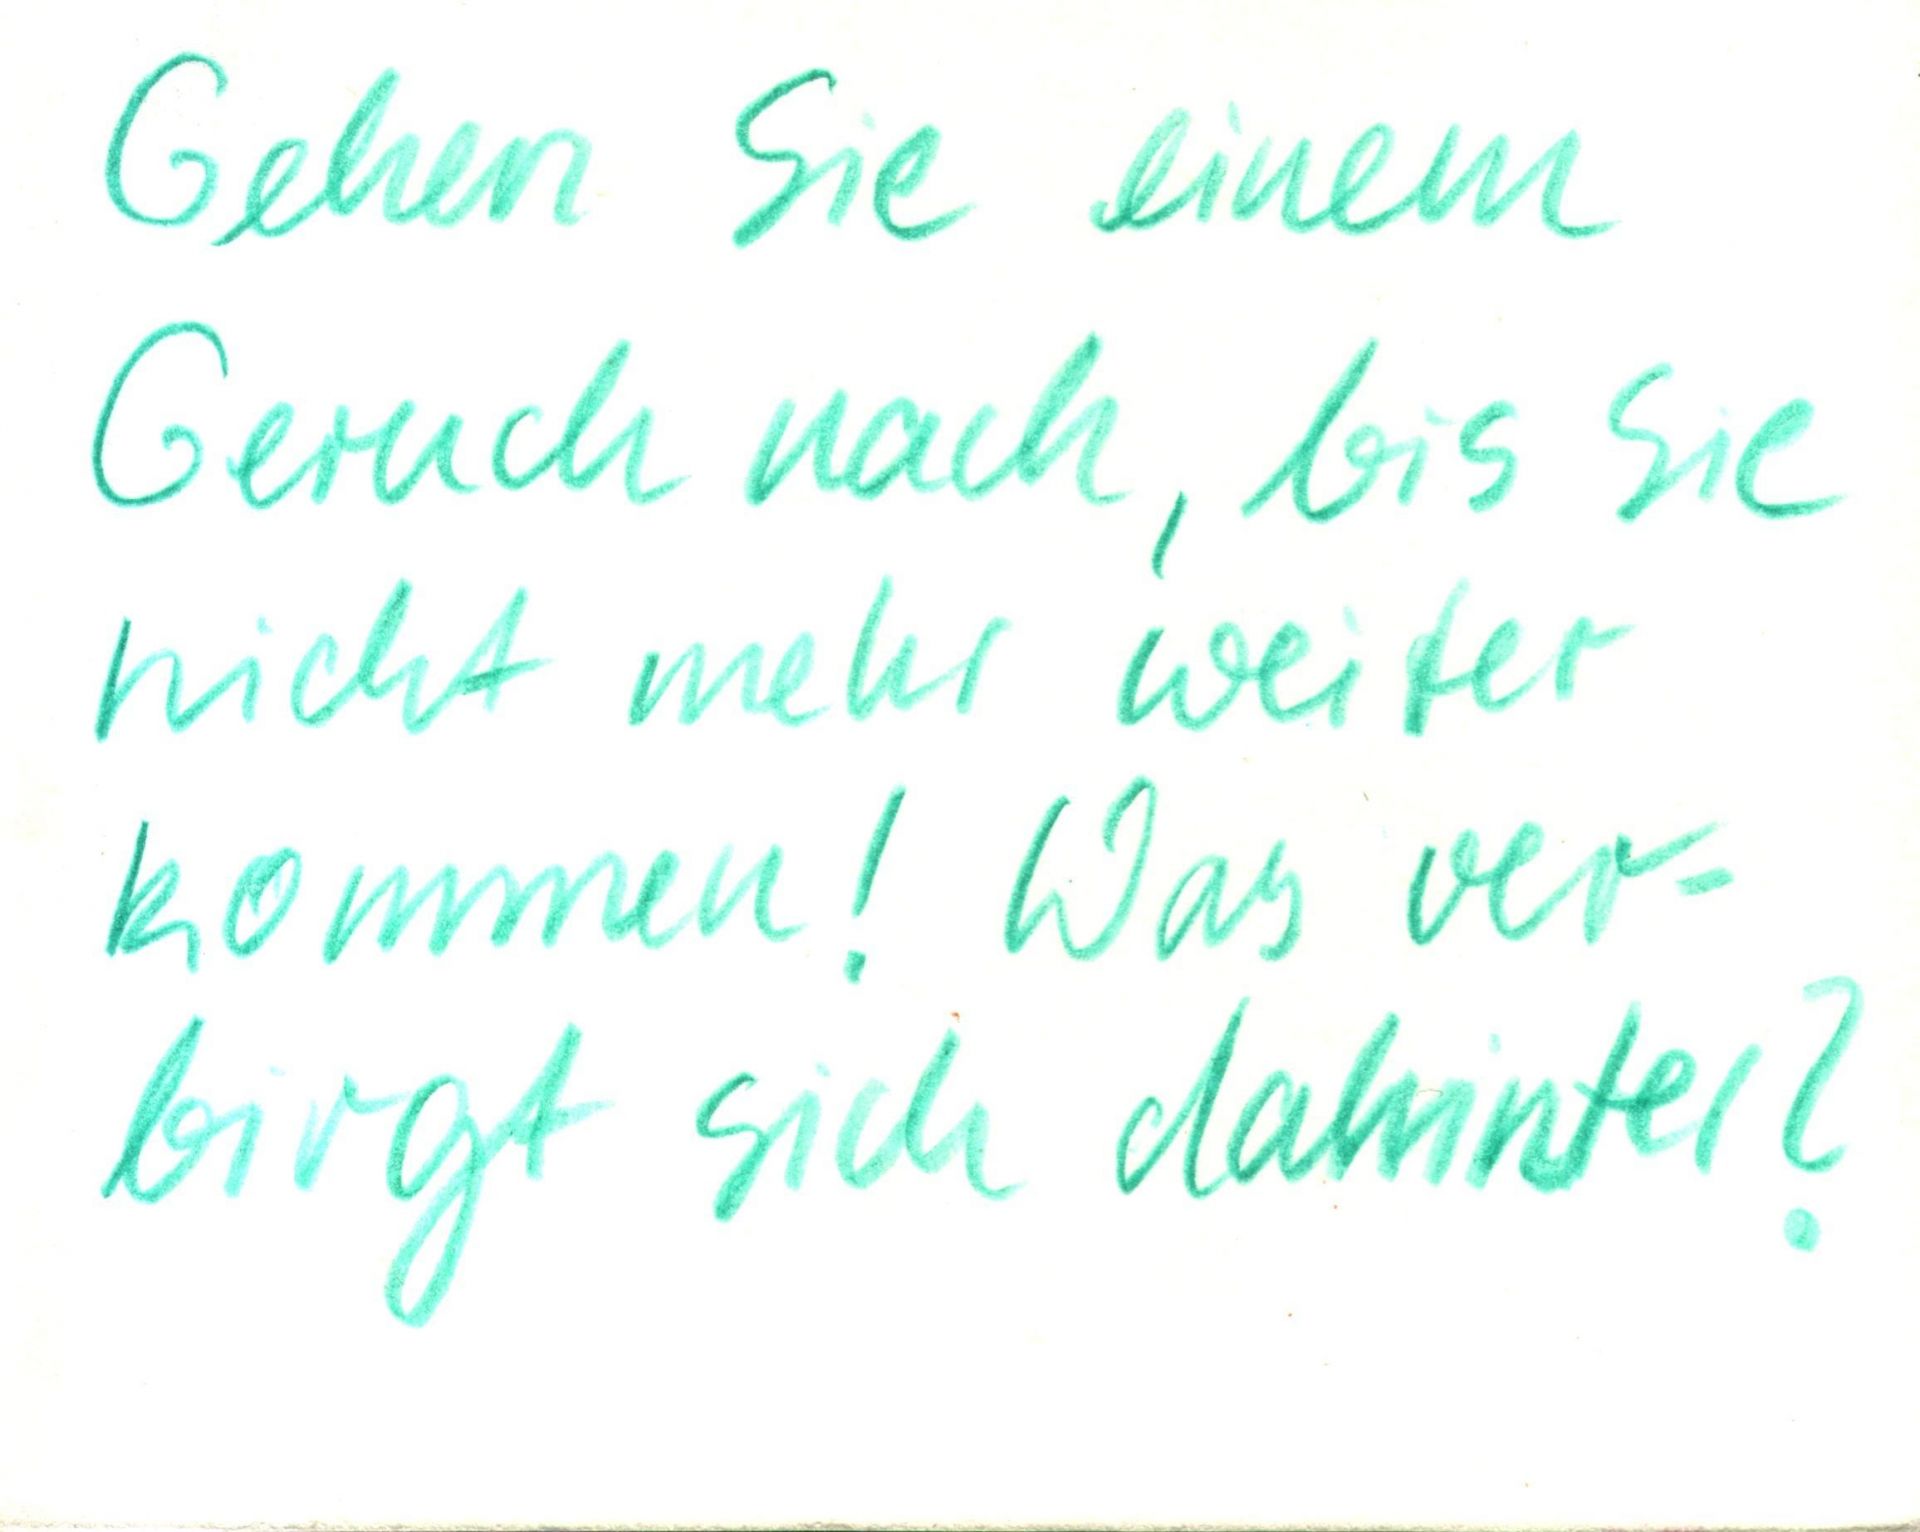 Gehen Sie einem
Geruch nach, bis Sie
nicht mehr weiter
kommen! Was ver-
birgt sich dahinter?